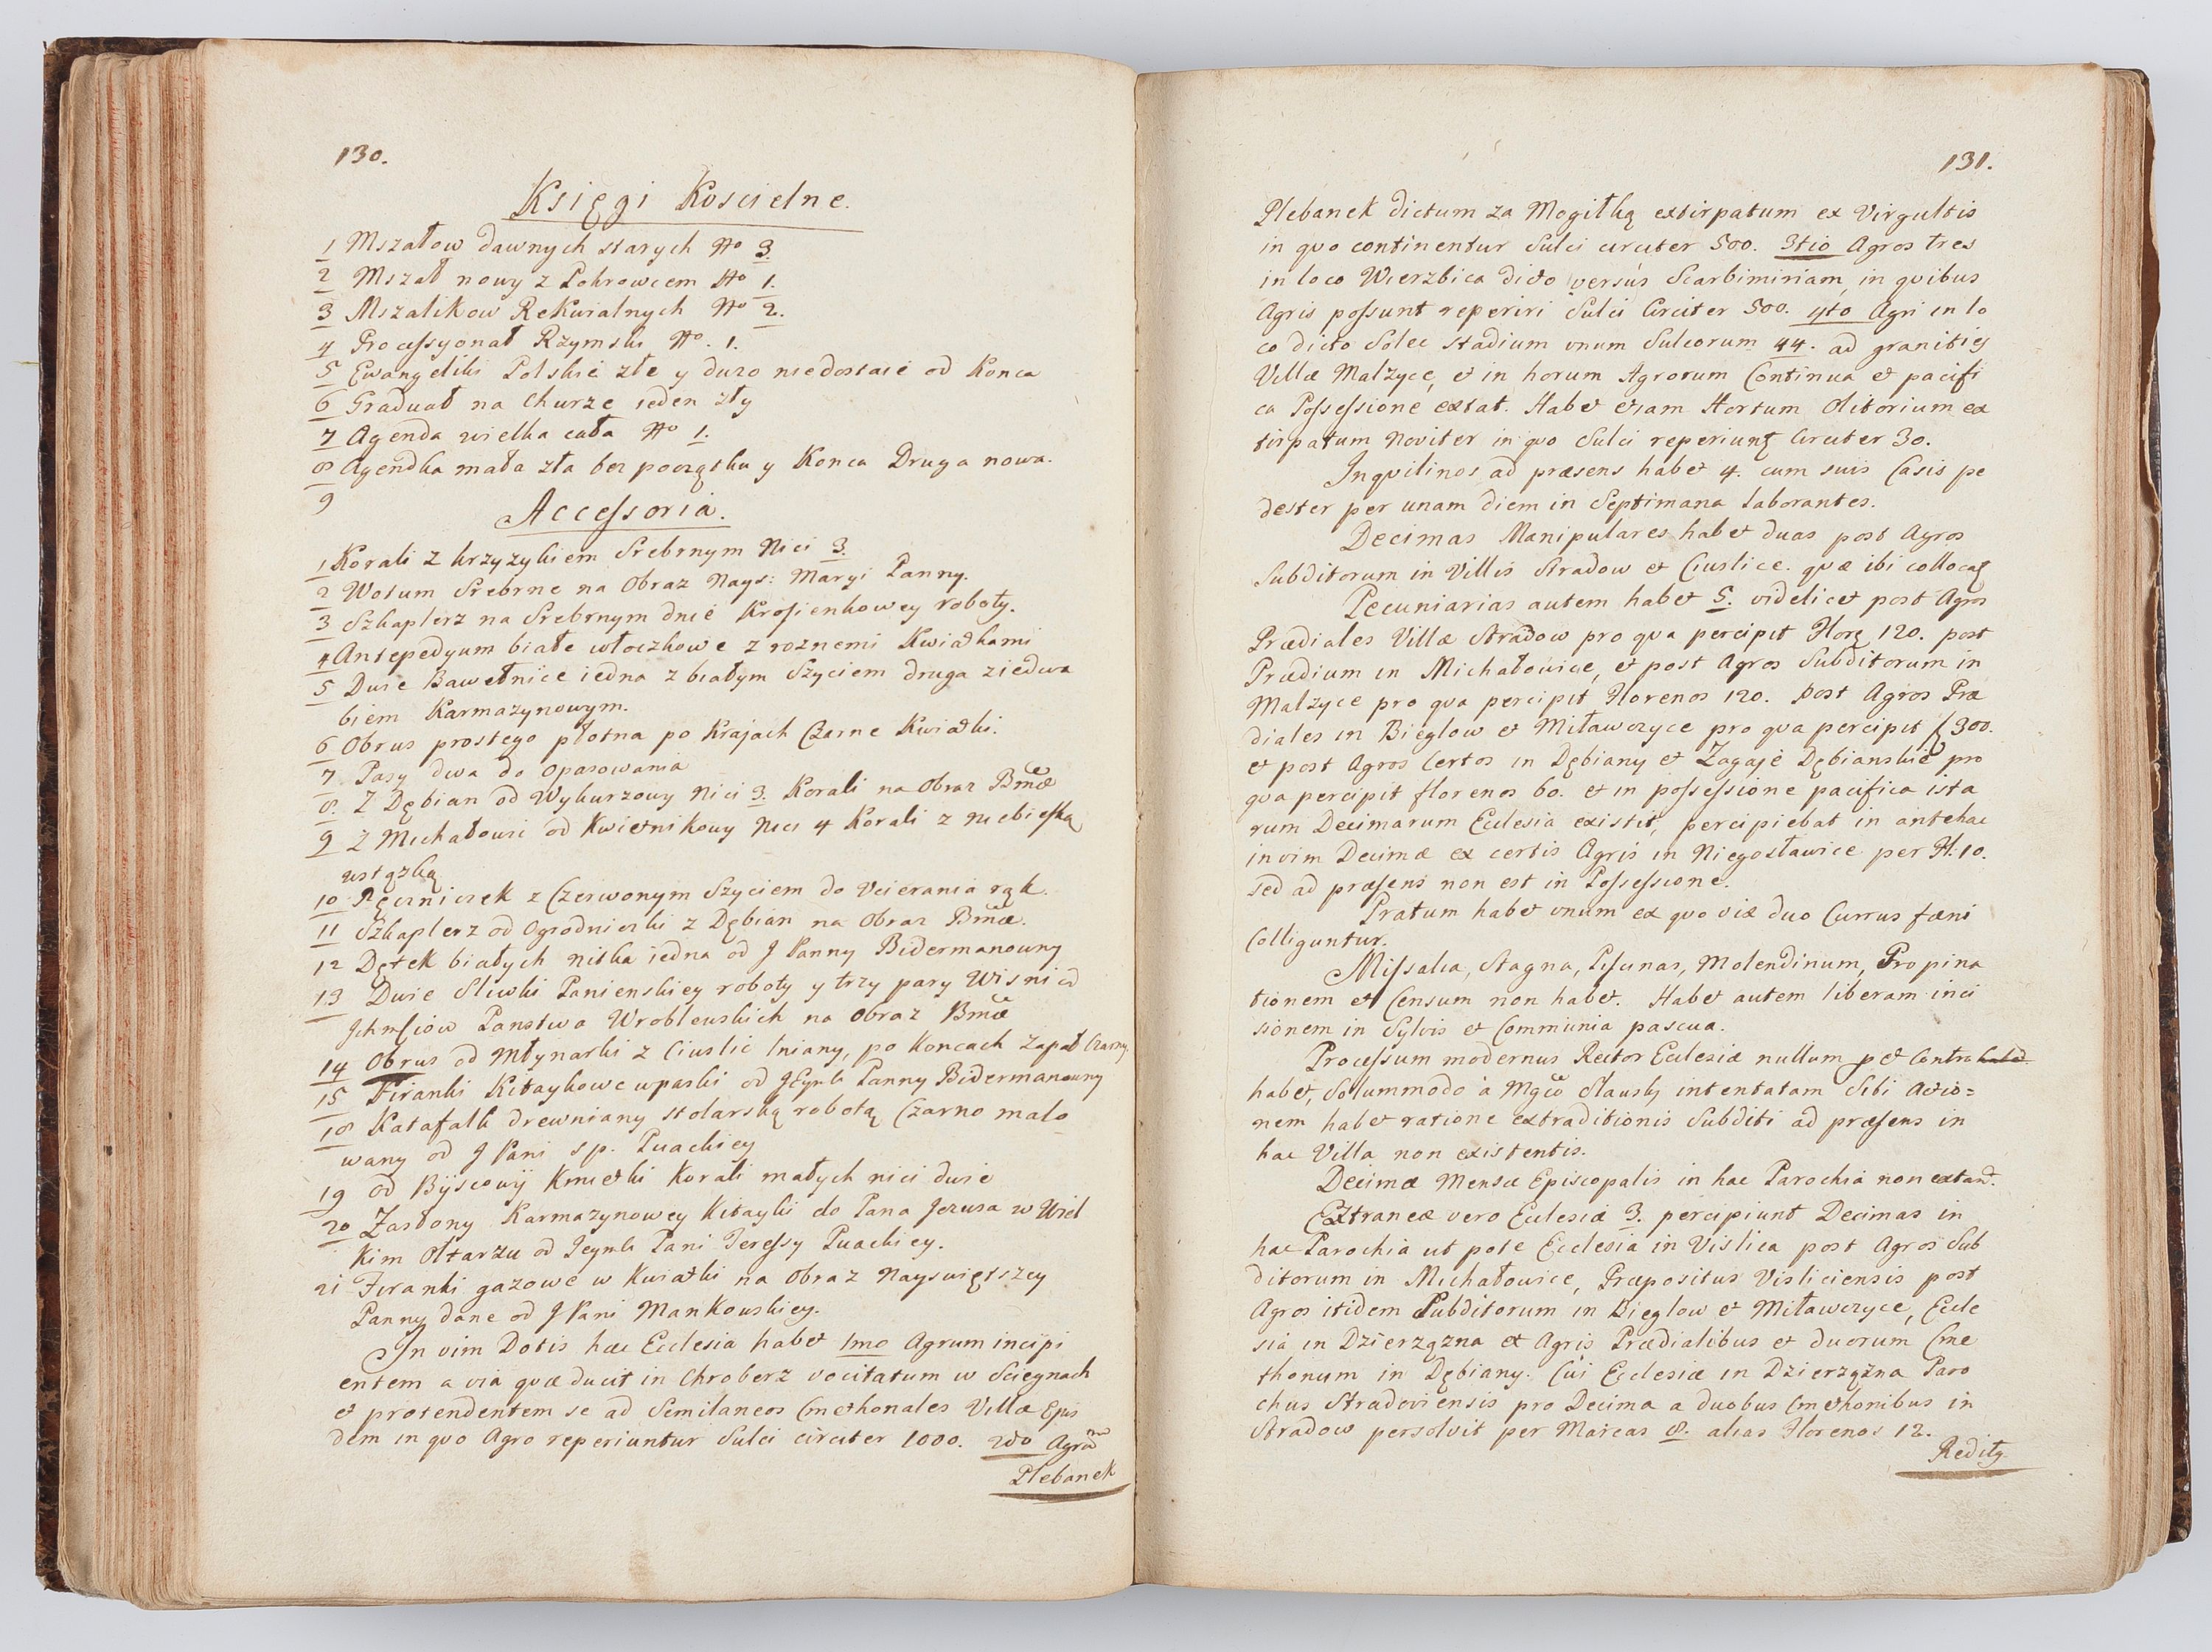 130.
Księgi Koscielne.
1 Mszałow dawnych starych No 3.
2 Mszał nowy z Pokrowcem No 1.
3 Mszalikow Rekwialnych No 2.
4 Processyonał Rzymski No. 1.
5 Ewangeliki Polskie złe y duzo niedostaie od Konca
6 Graduał na Churze ieden zły
7 Agenda wielka cała No 1.
8 Agendka mała zła bez początku y Konca Druga nowa.
9
Accessoria.
1 Korali z krzyzykiem Srebrnym Nici 3.
2 Wotum Srebrne na Obraz Nays: Maryi Panny.
3 Szkaplerz na Srebrnym dnie Krosienkowey roboty.
4 Antepedyum białe włoczkowe z roznemi Kwiatkami
5 Dwie Bawełnice iedna z białym Szyciem druga ziedwa
biem Karmazynowym.
6 Obrus prostego płotna po Krajach Czarne Kwiatki.
7 Pasy dwa do Opasowania
8. Z Dębian od Wykurzowy Nici 3. Korali na Obraz Bmæ
9 Z Michałowic od Kwietnikowy Nici 4 Korali z niebieską
wstązką
10 Ręczniczek z Czerwonym Szyciem do Vcierania rąk.
11 Szkaplerz od Ogrodniczki z Dębian na Obraz Bmæ.
12 Dętek białych nitka iedna od J Panny Bidermanowny
13 Dwie Sliwki Panienskiey roboty y trzy pary Wisni od
Jchmsciow Panstwa Wroblewskich na Obraz Bmæ
14 Obrus od Młynarki z Ciuslic lniany, po Koncach Zapał Czarny.
15 Firanki Kitaykowe wpaski od JEymk Panny Bidermanowny
18 Katafalk drewniany stolarską robotą Czarno malo
wany od J Pani sp. Puackiey
19 od Byscowy Kmietki Korali małych nici dwie
20 Zasłony Karmazynowey Kitayki do Pana Jezusa w Wiel
kim Ołtarzu od Jeymk Pani Teressy Puackiey.
21 Firanki gazowe w Kwiatki na Obraz Nayswiętszey
Panny dane od J Pani Mankowskiey.
In vim Dotis hæc Ecclesia habet 1mo Agrum incipi
entem a via quæ ducit in Chroberz vocitatum w Sciegnach
et protendentem se ad Semilaneos Cmethonales Villæ Ejus
dem in quo Agro reperiuntur Sulci circiter 1000. 2do Agrum
Plebanek
131.
Plebanek dictum za Mogiłką extirpatum ex Virgultis
in quo continentur Sulci circiter 500. 3tio Agros tres
in loco Wierzbica dicto versus Scarbimiriam, in quibus
Agris possunt reperiri Sulci Circiter 500. 4to Agri in lo
co dicto Solec stadium unum Sulcorum 44. ad granities
Villæ Malzyce, et in horum Agrorum Continua et pacifi
ca Possessione extat. Habet etiam Hortum Olitorium ex
tirpatum Noviter in quo Sulci reperiunt Circiter 30.
Inquilinos ad præsens habet 4. cum suis Casis pe
dester per unam diem in Septimana laborantes.
Decimas Manipulares habet duas post Agros
Subditorum in Villis Stradow et Ciuslice. quæ ibi collocat
Pecuniarias autem habet 5. videlicet post Agros
Prædiales Villæ Stradow pro qua percipit Flore 120. post
Prædium in Michałowice, et post Agros Subditorum in
Malzyce pro qua percipit Florenos 120. post Agros Præ
diales in Bieglow et Miławczyce pro qua percipit f 300.
et post Agros Certos in Dębiany et Zagaje Dębianskie pro
qua percipit florenos 60. et in possessione pacifica ista
rum Decimarum Ecclesia existit, percipiebat in antehac
in vim Decimæ ex certis Agris in Niegosławice per Fl. 10.
sed ad præsens non est in Possessione.
Pratum habet unum ex quo vix duo Currus fæni
Colliguntur.
Missalia, Stagna, Piscinas, Molendinum, Propina
tionem et Censum non habet. Habet autem liberam inci
sionem in Sylvis et Communia pascua.
Processum modernus Rector Ecclesiæ nullum p et Contra
habet, Solummodo à Mgco Slausky intentatam Sibi Actio=
nem habet ratione extraditionis Subditi ad præsens in
hac Villa non existentis.
Decimæ Mensæ Episcopalis in hac Parochia non extant.
Extraneæ vero Ecclesiæ 3. percipiunt Decimas in
hac Parochia ut pote Ecclesia in Vislica post Agros Sub
ditorum in Michałowice, Præpositus Visliciensis post
Agros itidem Subditorum in Bieglow et Miławczyce, Eccle
sia in Dzierzązna ex Agris Prædialibus et duorum Cme
thonum in Dębiany. Cui Ecclesiæ in Dzierzązna Paro
chus Stradoviensis pro Decima a duobus Cmethonibus in
Stradow persolvit per Marcas 8. alias Florenos 12.
Redity